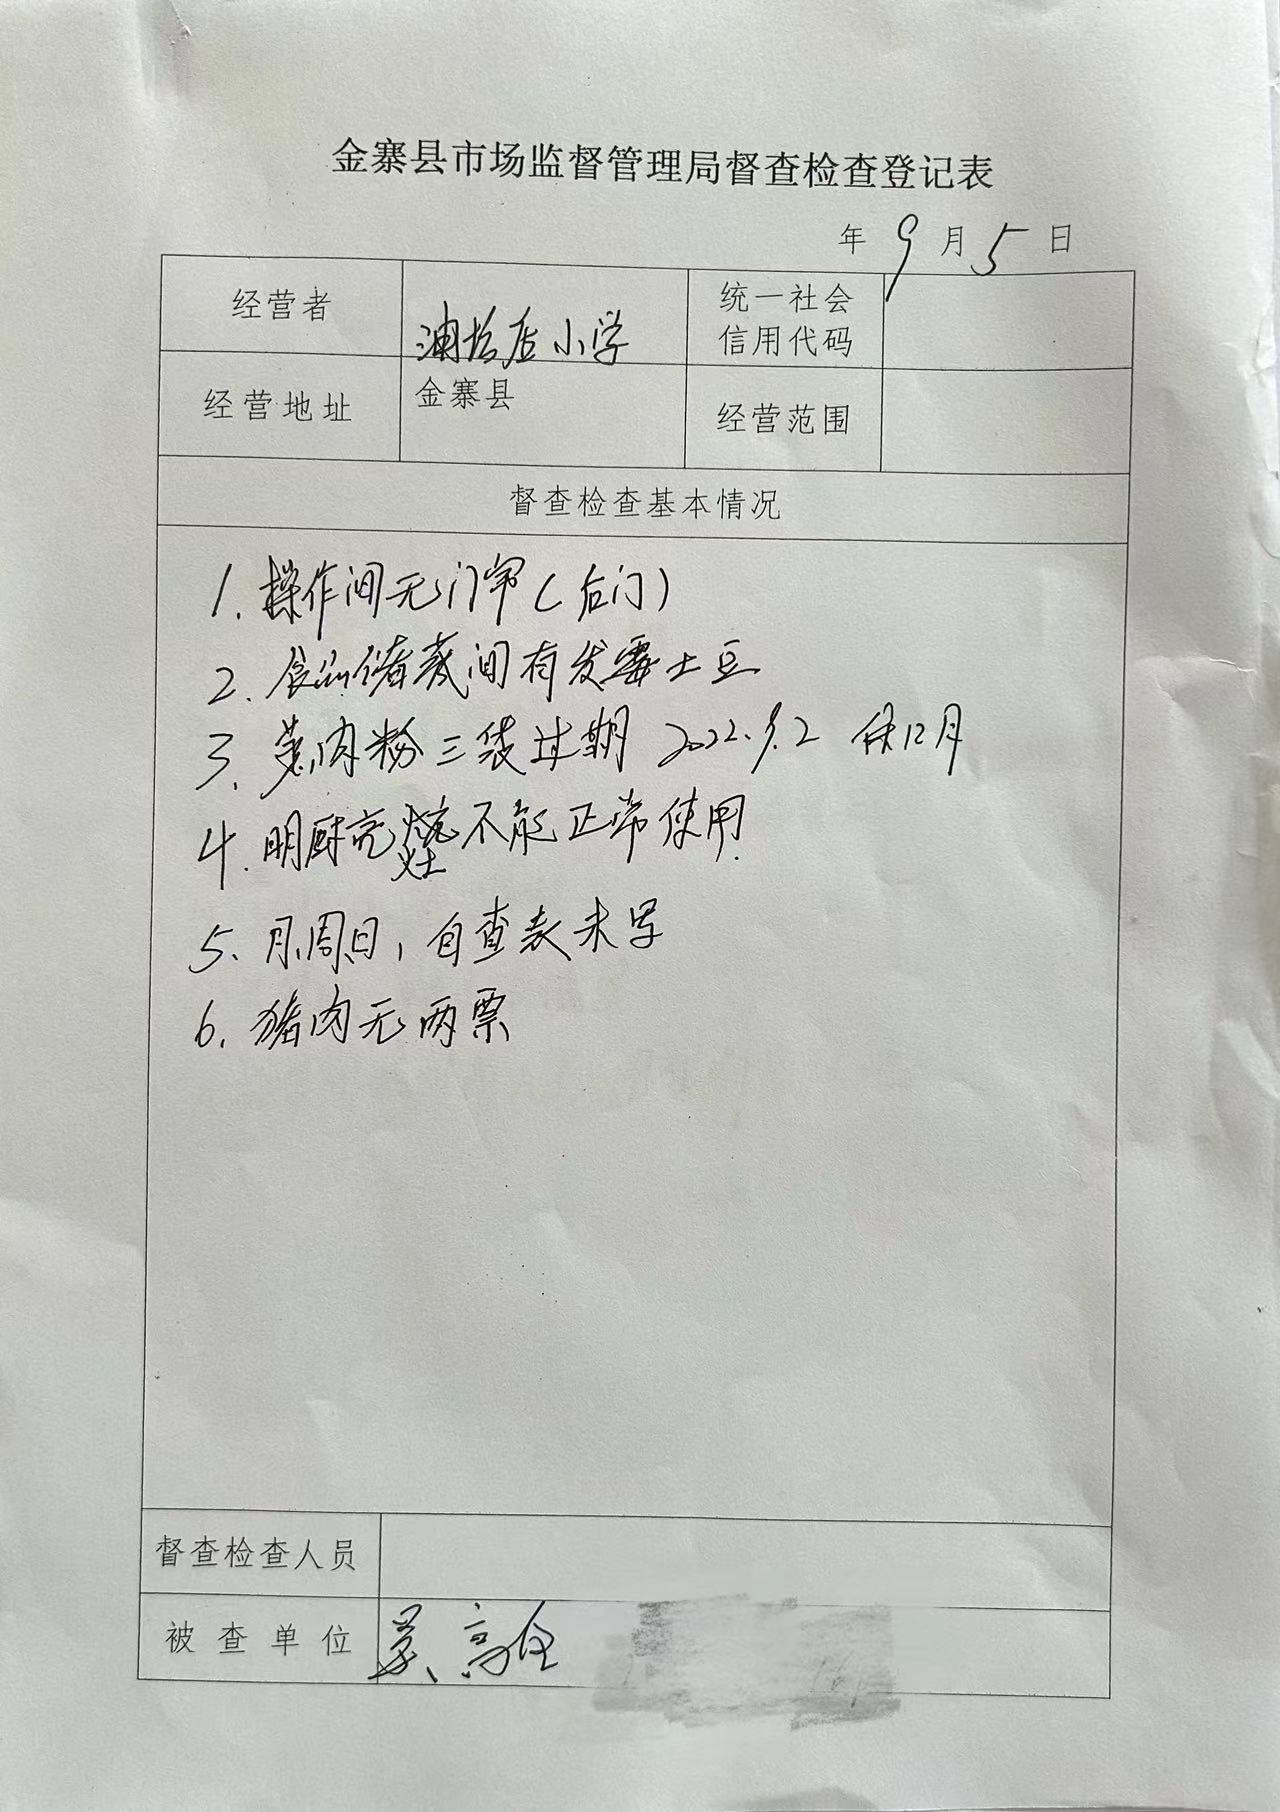 金寨县市场监督管理局督查检查登记表
年 9 月 5 日
经营者
浦坊店小学
统一社会
信用代码
经营地址
金寨县
经营范围
督查检查基本情况
1. 操作间无门帘(后门)
2. 食品储藏间有发霉土豆
3. 蒸肉粉三袋过期 2022.9.2 保12月
4. 明厨亮灶不能正常使用.
5. 月、周、日,自查表未写
6. 猪肉无两票
督查检查人员
被查单位
高全